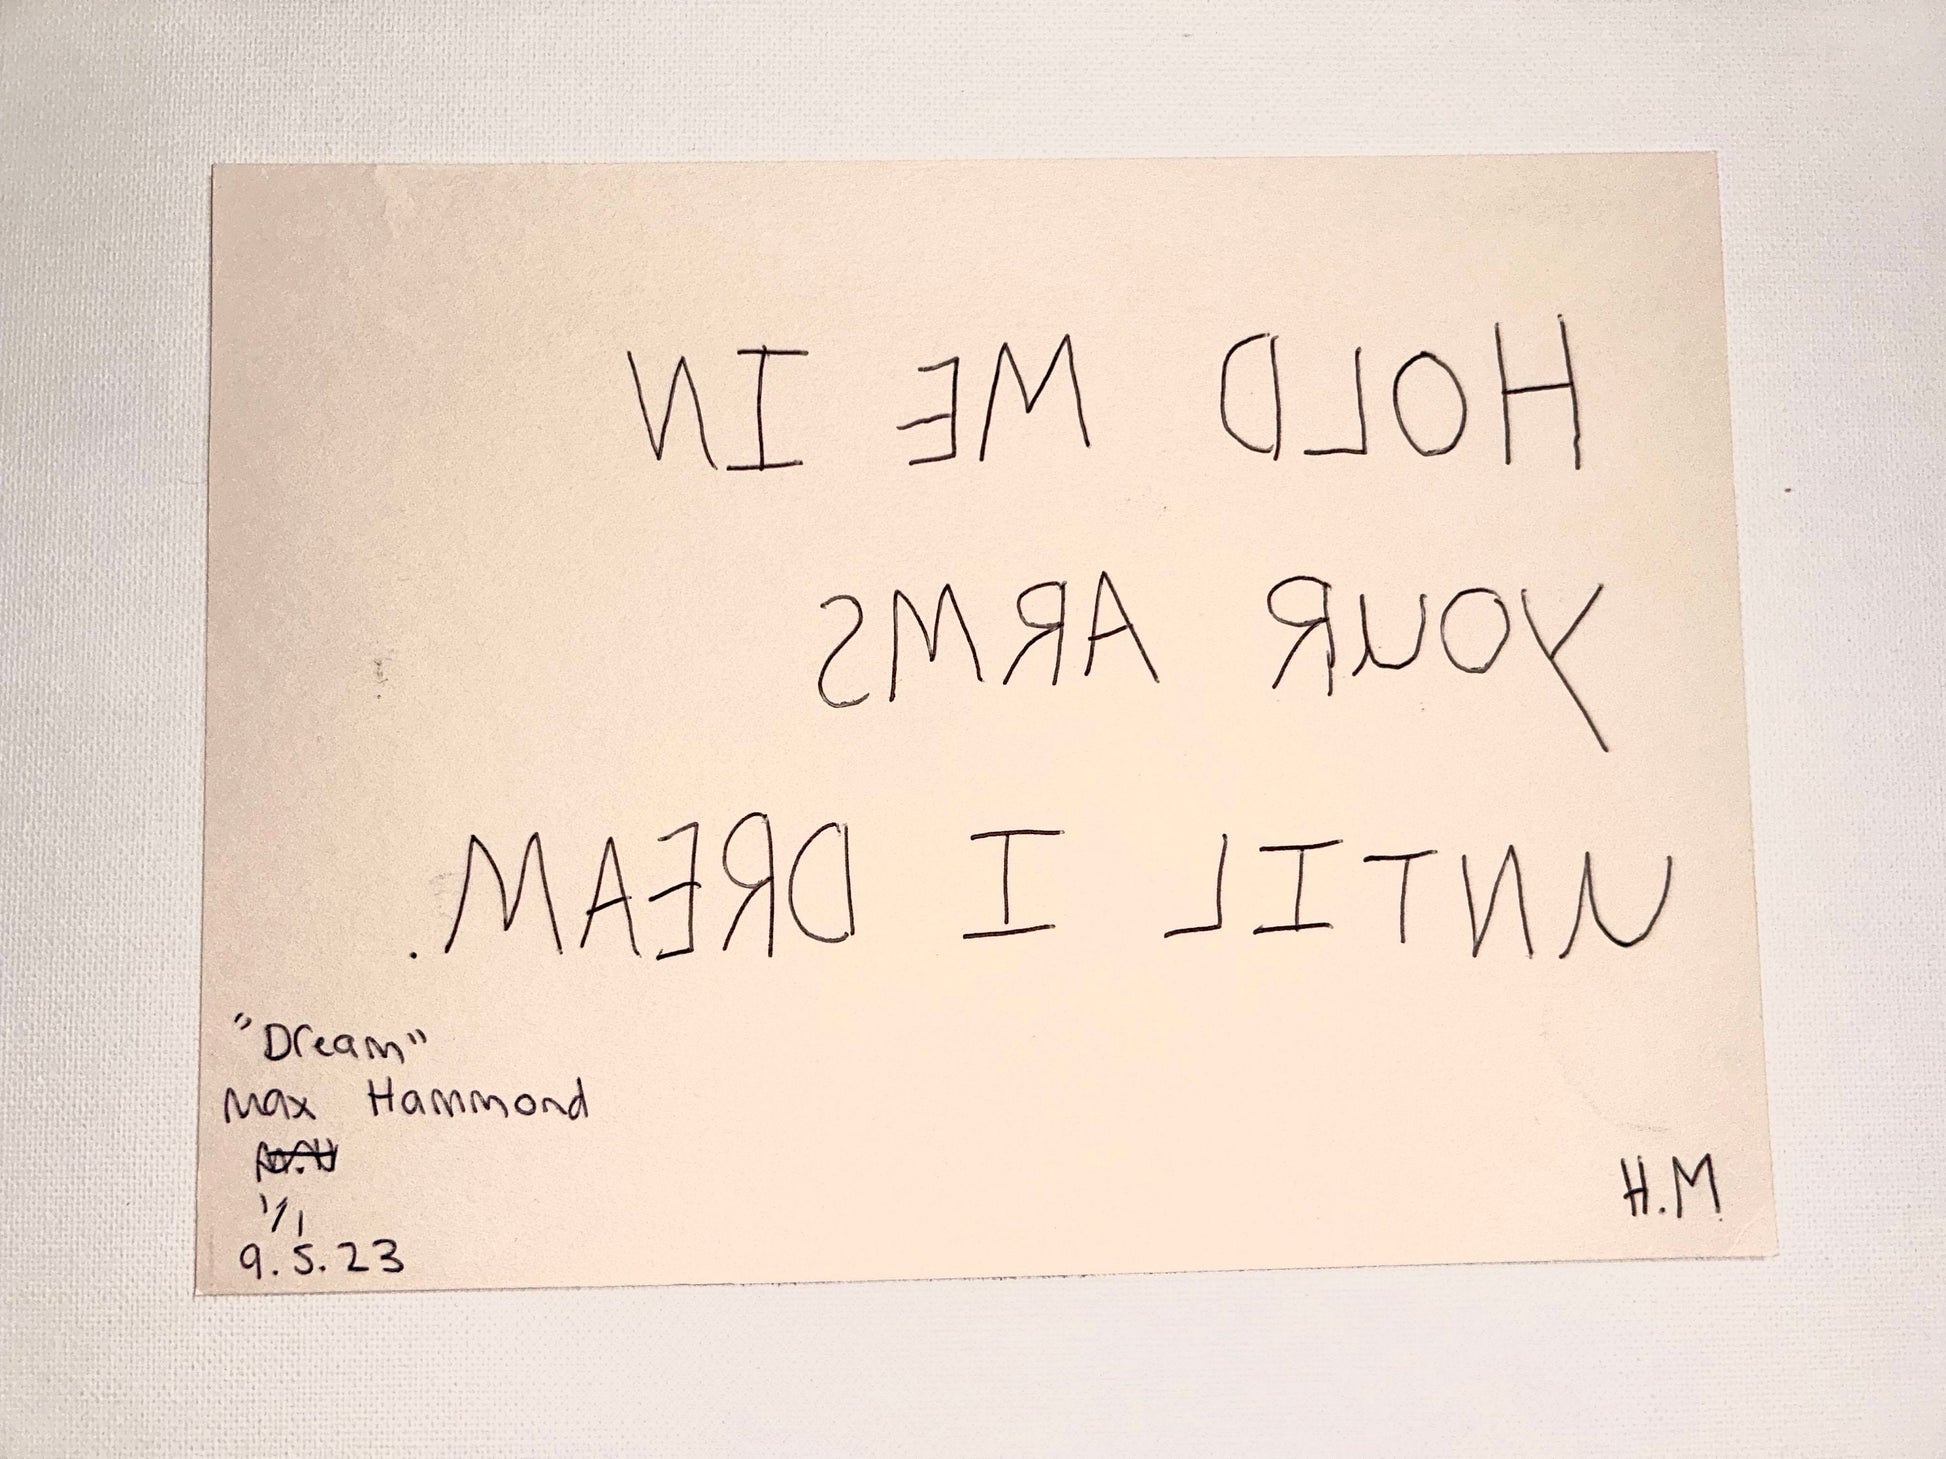 HOLD ME IN
YOUR ARMS
UNTIL I DREAM.
"Dream"
Max Hammond
1/1
9.5.23
H.M